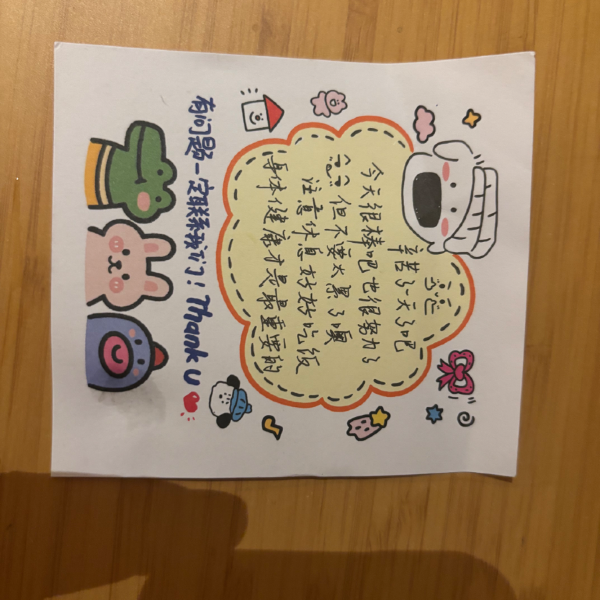 辛苦了一天了吧
今天很棒吧也很努力了
但不要太累了噢
注意休息 好好吃饭
身体健康才是最重要的
有问题一定联系我们! Thank U